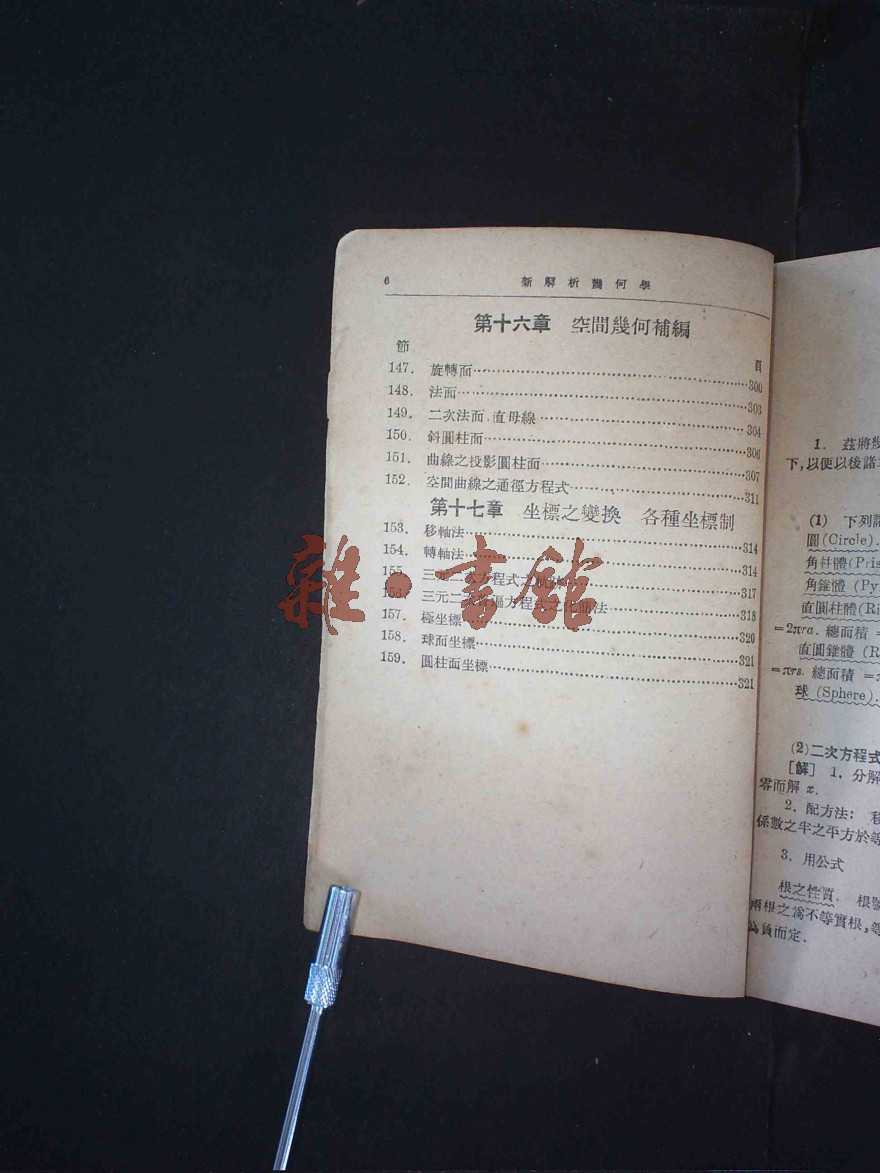 6
新解析幾何學
第十六章 空間幾何補編
節 頁
147. 旋轉面 300
148. 法面 303
149. 二次法面.直母線 304
150. 斜圓柱面 306
151. 曲線之投影圓柱面 307
152. 空間曲線之通徑方程式 311
第十七章 坐標之變換 各種坐標制
153. 移軸法 314
154. 轉軸法 314
155. 三元二次方程式之 317
三元二次 方程式之 法 318
157. 極坐標 320
158. 球面坐標 321
159. 圓柱面坐標 321
雜·書館
1. 茲將
下,以便以後諸
(1) 下列
圓(Circle).
角柱體(Pris
角錐體 (Py
直圓柱體(Ri
=2πra. 總面積 =
直圓錐體 (R
=πrs. 總面積 =
球 (Sphere).
(2)二次方程式
[解] 1. 分解
零而解 x.
2. 配方法: 移
係數之半之平方於等
3. 用公式
根之性質. 根號
兩根之為不等實根,等
為負而定.